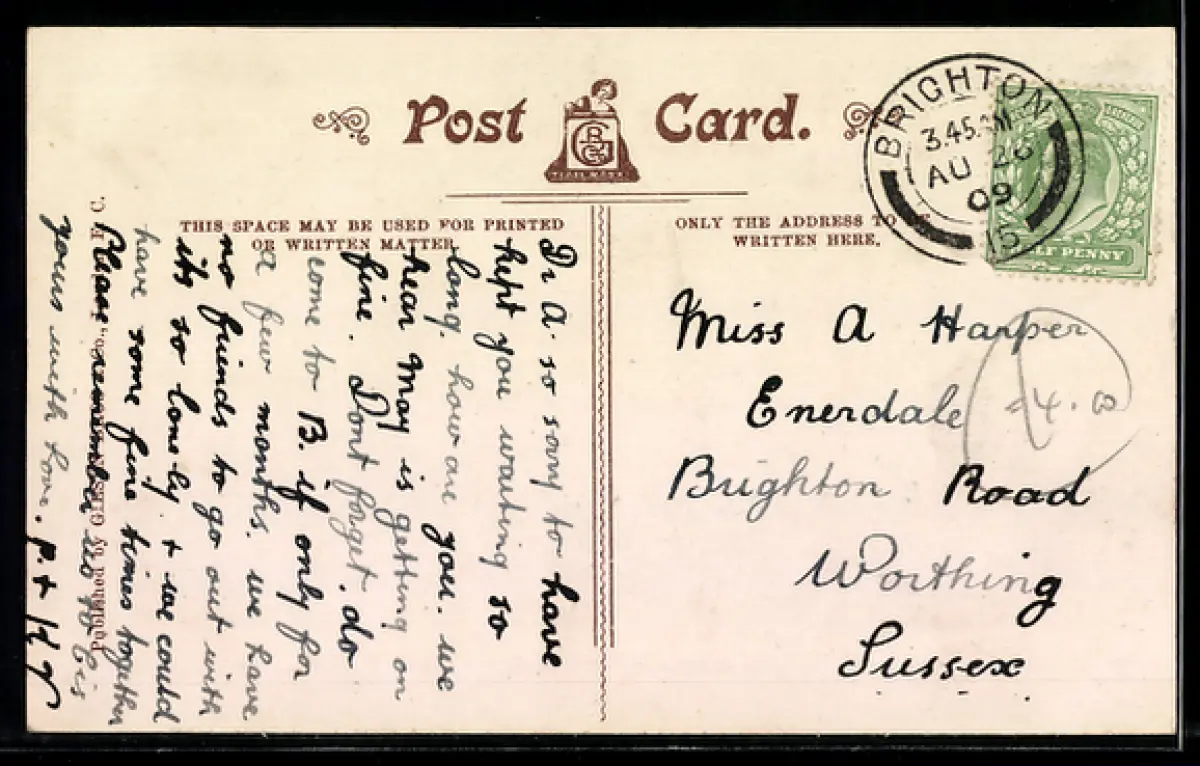 Post Card.
BRIGHTON
3.45
AU 26
09
15
HALF PENNY
THIS SPACE MAY BE USED FOR PRINTED
OR WRITTEN MATTER.
ONLY THE ADDRESS TO BE
WRITTEN HERE.
Dr A. so sorry to have
kept you waiting so
long. how are you. we
hear May is getting on
fine. Dont forget. do
come to B. if only for
a few months. we have
no friends to go out with
its so lonely + we could
have some fine times together
Please remember us to Cis
yours with love. P. + K
Published by
Miss A Harper
Enerdale
Brighton Road
Worthing
Sussex